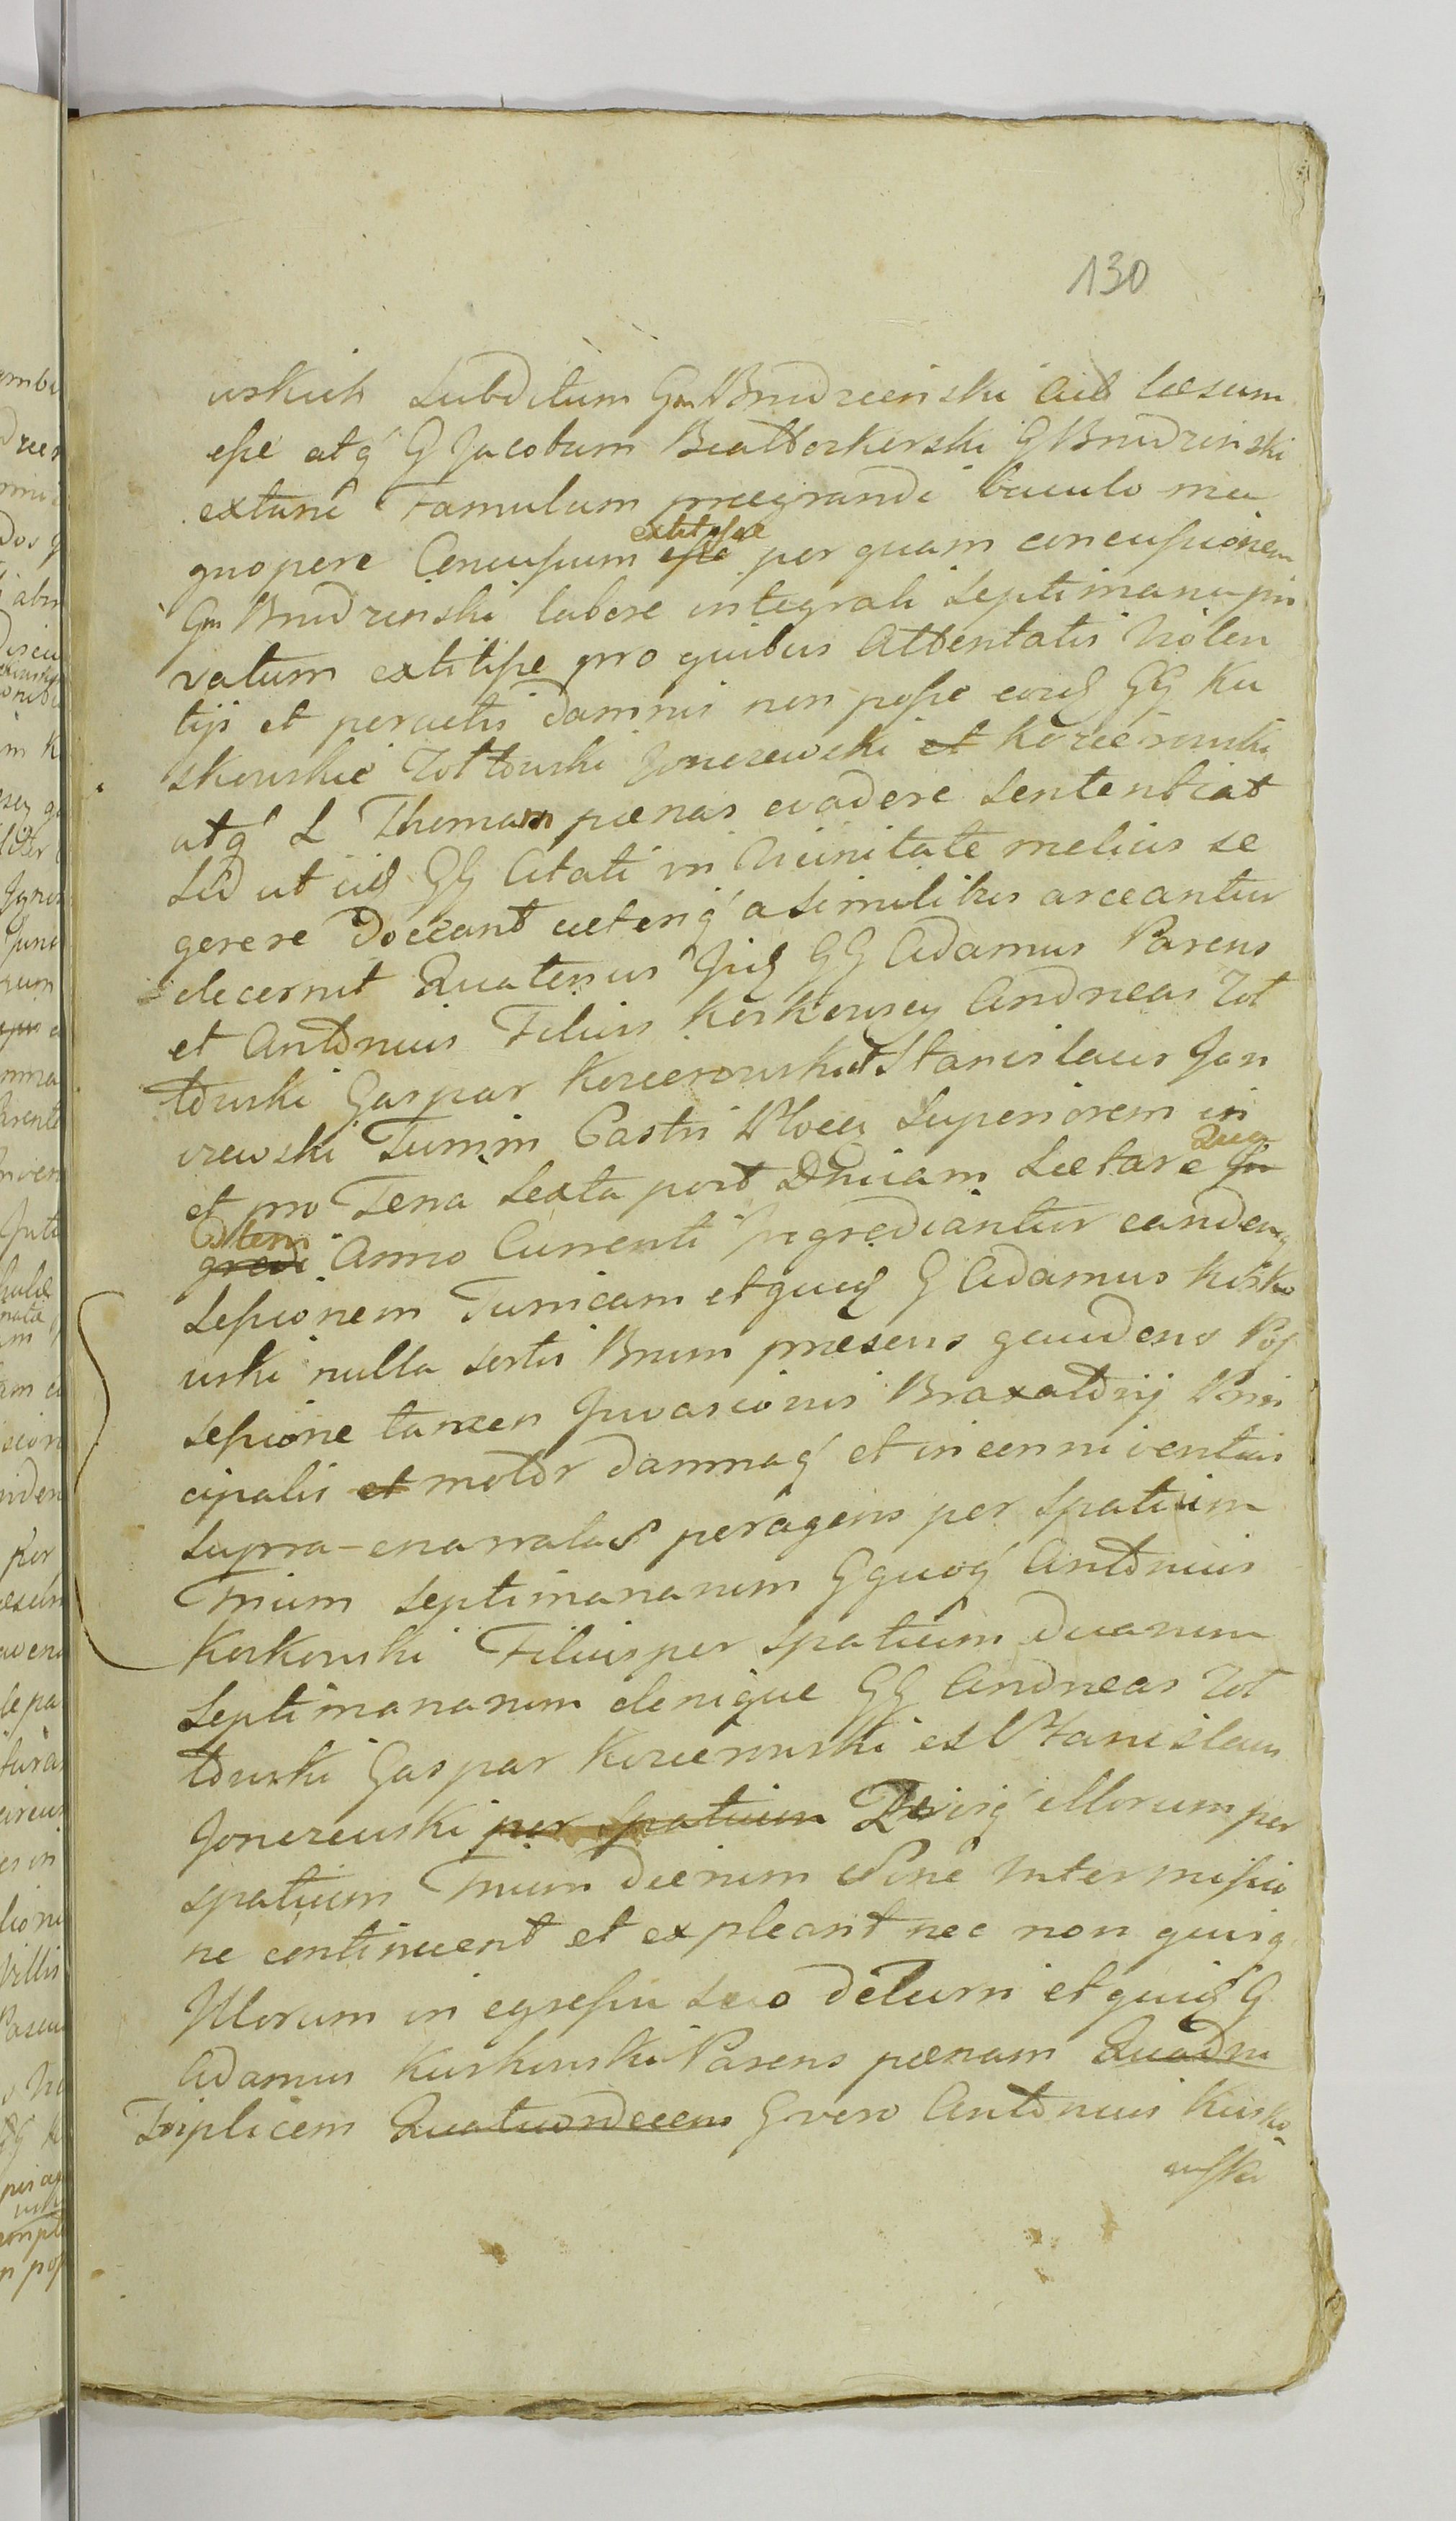 130
wskich Subditum Gm Brudzeinski Act læsum
esse atq G Jacobum Biattoskorski G Brudzinski
extunc Famulum prægrandi baculo ma
gnopere Concussum esse extitisse per quam concussionem
Gm Brudzinski labore integrali Septimana pri
vatum extitisse pro quibus Attentatis Violen
tijs et peractis damnis non posse eosd GG Ku
skowskie Zottowski Jonczewski et Kozierowski
atq L Thomam pænas evadere Sententiat
Sed ut iid GG Citati in Vicinitate melius se
gerere doceant cæteriq a similibus arceantur
decernit Quatenus Iid GG Adamus Parens
et Antonius Filius Koskowscy Andreas Zot
towski Gaspar Kozierowski et Stanislaus Jon
czewski Turrim Castri Plocen Superiorem in
et pro Feria Sexta post Dnicam Lætare Qua In
dlem gredi Anno Currenti Ingrediantur eandemq
Sessionem Turricam et quid G Adamus Kosko
wski nulla sortis Brum præsens gaudens Pos
sessione tamen Invasionis Braxatorij Prin
cipalis et motor damnaq et inconnivientias
supra-enarratas peragens per spatium
Trium Septimanarum G quoq Antonius
Koskowski Filius per spatium duarum
Septimanarum denique GG Andreas Zot
towski Gaspar Kozierowski et Stanislaus
Jonczewski per spatium Quisq illorum per
spatium Trium dierum Sine Intermissio
ne continuent et expleant nec non quisq
Illorum in egressu suo de Turri et quid G
Adamus Kuskowski Parens pænam Quadru
Triplicem Quatuordecem G vero Antonius Kusko
wski